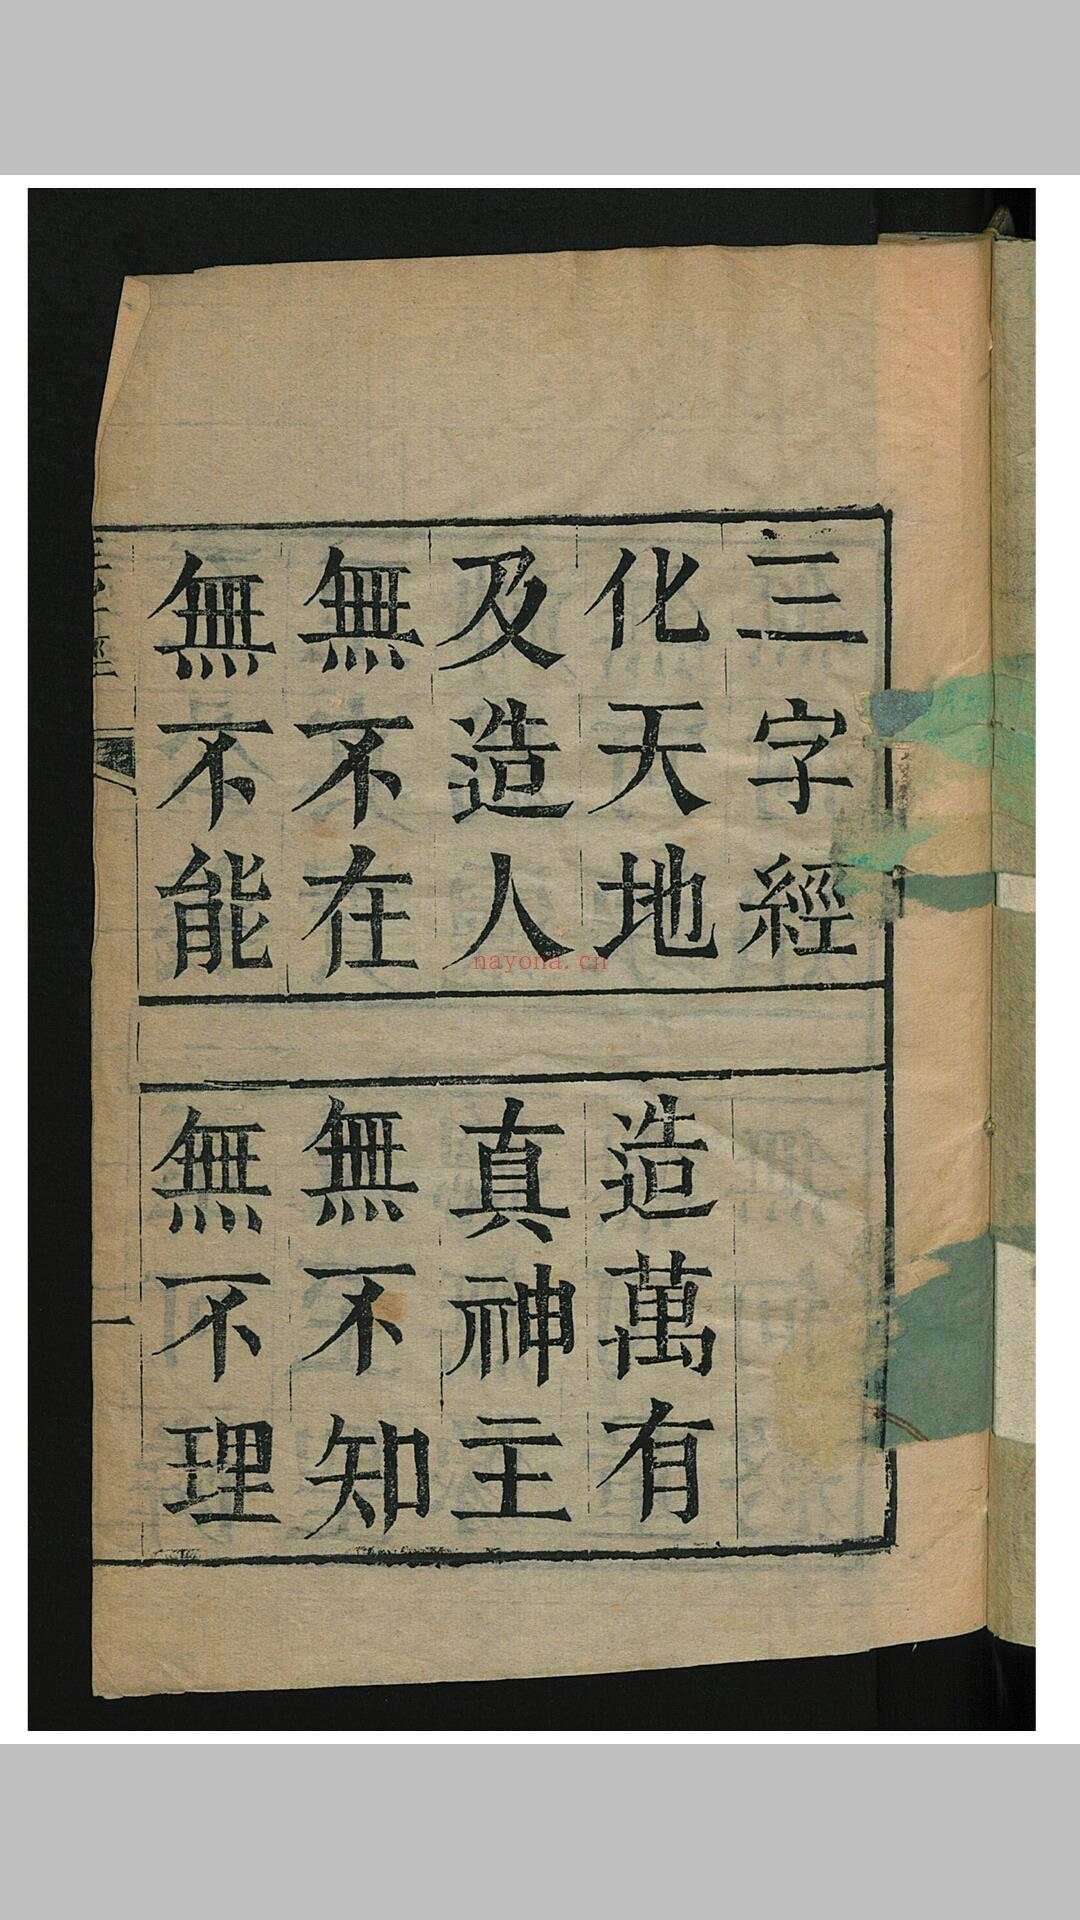 三字經
化天地
造萬有
及造人
真神主
無不在
無不知
無不能
無不理
三字經
一
nayona.cn